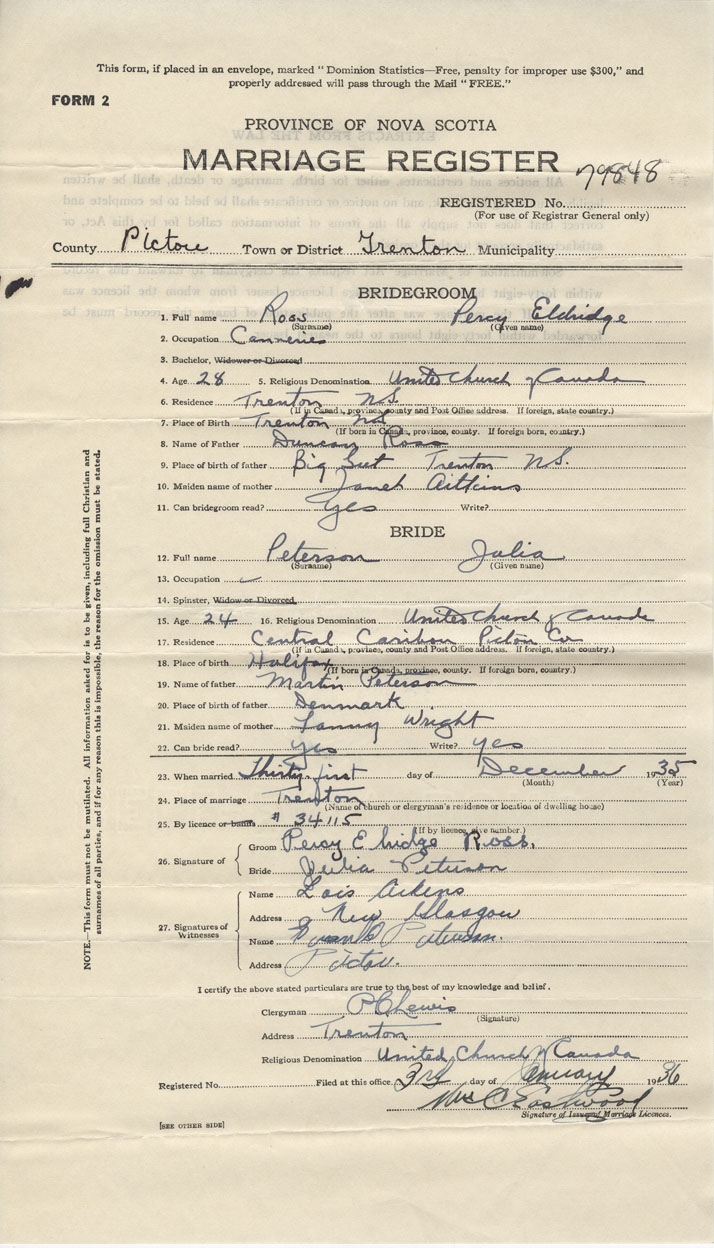 This form, if placed in an envelope, marked "Dominion Statistics—Free, penalty for improper use $300," and
properly addressed will pass through the Mail "FREE."
FORM 2
PROVINCE OF NOVA SCOTIA
MARRIAGE REGISTER 79848
REGISTERED No.
(For use of Registrar General only)
County Pictou Town or District Trenton Municipality
BRIDEGROOM
1. Full name Ross Percy Eldridge
(Surname) (Given name)
2. Occupation Canneries
3. Bachelor, Widower or Divorced
4. Age 28 5. Religious Denomination United Church of Canada
6. Residence Trenton N.S.
(If in Canada, province, county and Post Office address. If foreign, state country.)
7. Place of Birth Trenton N.S.
(If born in Canada, province, county. If foreign born, country.)
8. Name of Father Duncan Ross
9. Place of birth of father Big Gut Trenton N.S.
10. Maiden name of mother Janet Aitkins
11. Can bridegroom read? Yes Write?
BRIDE
12. Full name Peterson Julia
(Surname) (Given name)
13. Occupation
14. Spinster, Widow or Divorced
15. Age 24 16. Religious Denomination United Church of Canada
17. Residence Central Caribou Pictou Co
(If in Canada, province, county and Post Office address. If foreign, state country.)
18. Place of birth Halifax
(If born in Canada, province, county. If foreign born, country.)
19. Name of father Martin Peterson
20. Place of birth of father Denmark
21. Maiden name of mother Fanny Wright
22. Can bride read? yes Write? yes
23. When married Thirty-first day of December 1935
(Month) (Year)
24. Place of marriage Trenton
(Name of church or clergyman's residence or location of dwelling house)
25. By licence or banns # 34115
(If by licence, give number.)
26. Signature of
Groom Percy Elridge Ross,
Bride Julia Peterson
27. Signatures of Witnesses
Name Lois Aikens
Address New Glasgow
Name Peterson.
Address Pictou.
I certify the above stated particulars are true to the best of my knowledge and belief.
Clergyman P C Lewis
(Signature)
Address Trenton
Religious Denomination United Church of Canada
Registered No. Filed at this office 3rd day of January 1936
Mrs C Eastwood
Signature of Issuer of Marriage Licences.
[SEE OTHER SIDE]
NOTE.—This form must not be mutilated. All information asked for is to be given, including full Christian and
surnames of all parties, and if for any reason this is impossible, the reason for the omission must be stated.